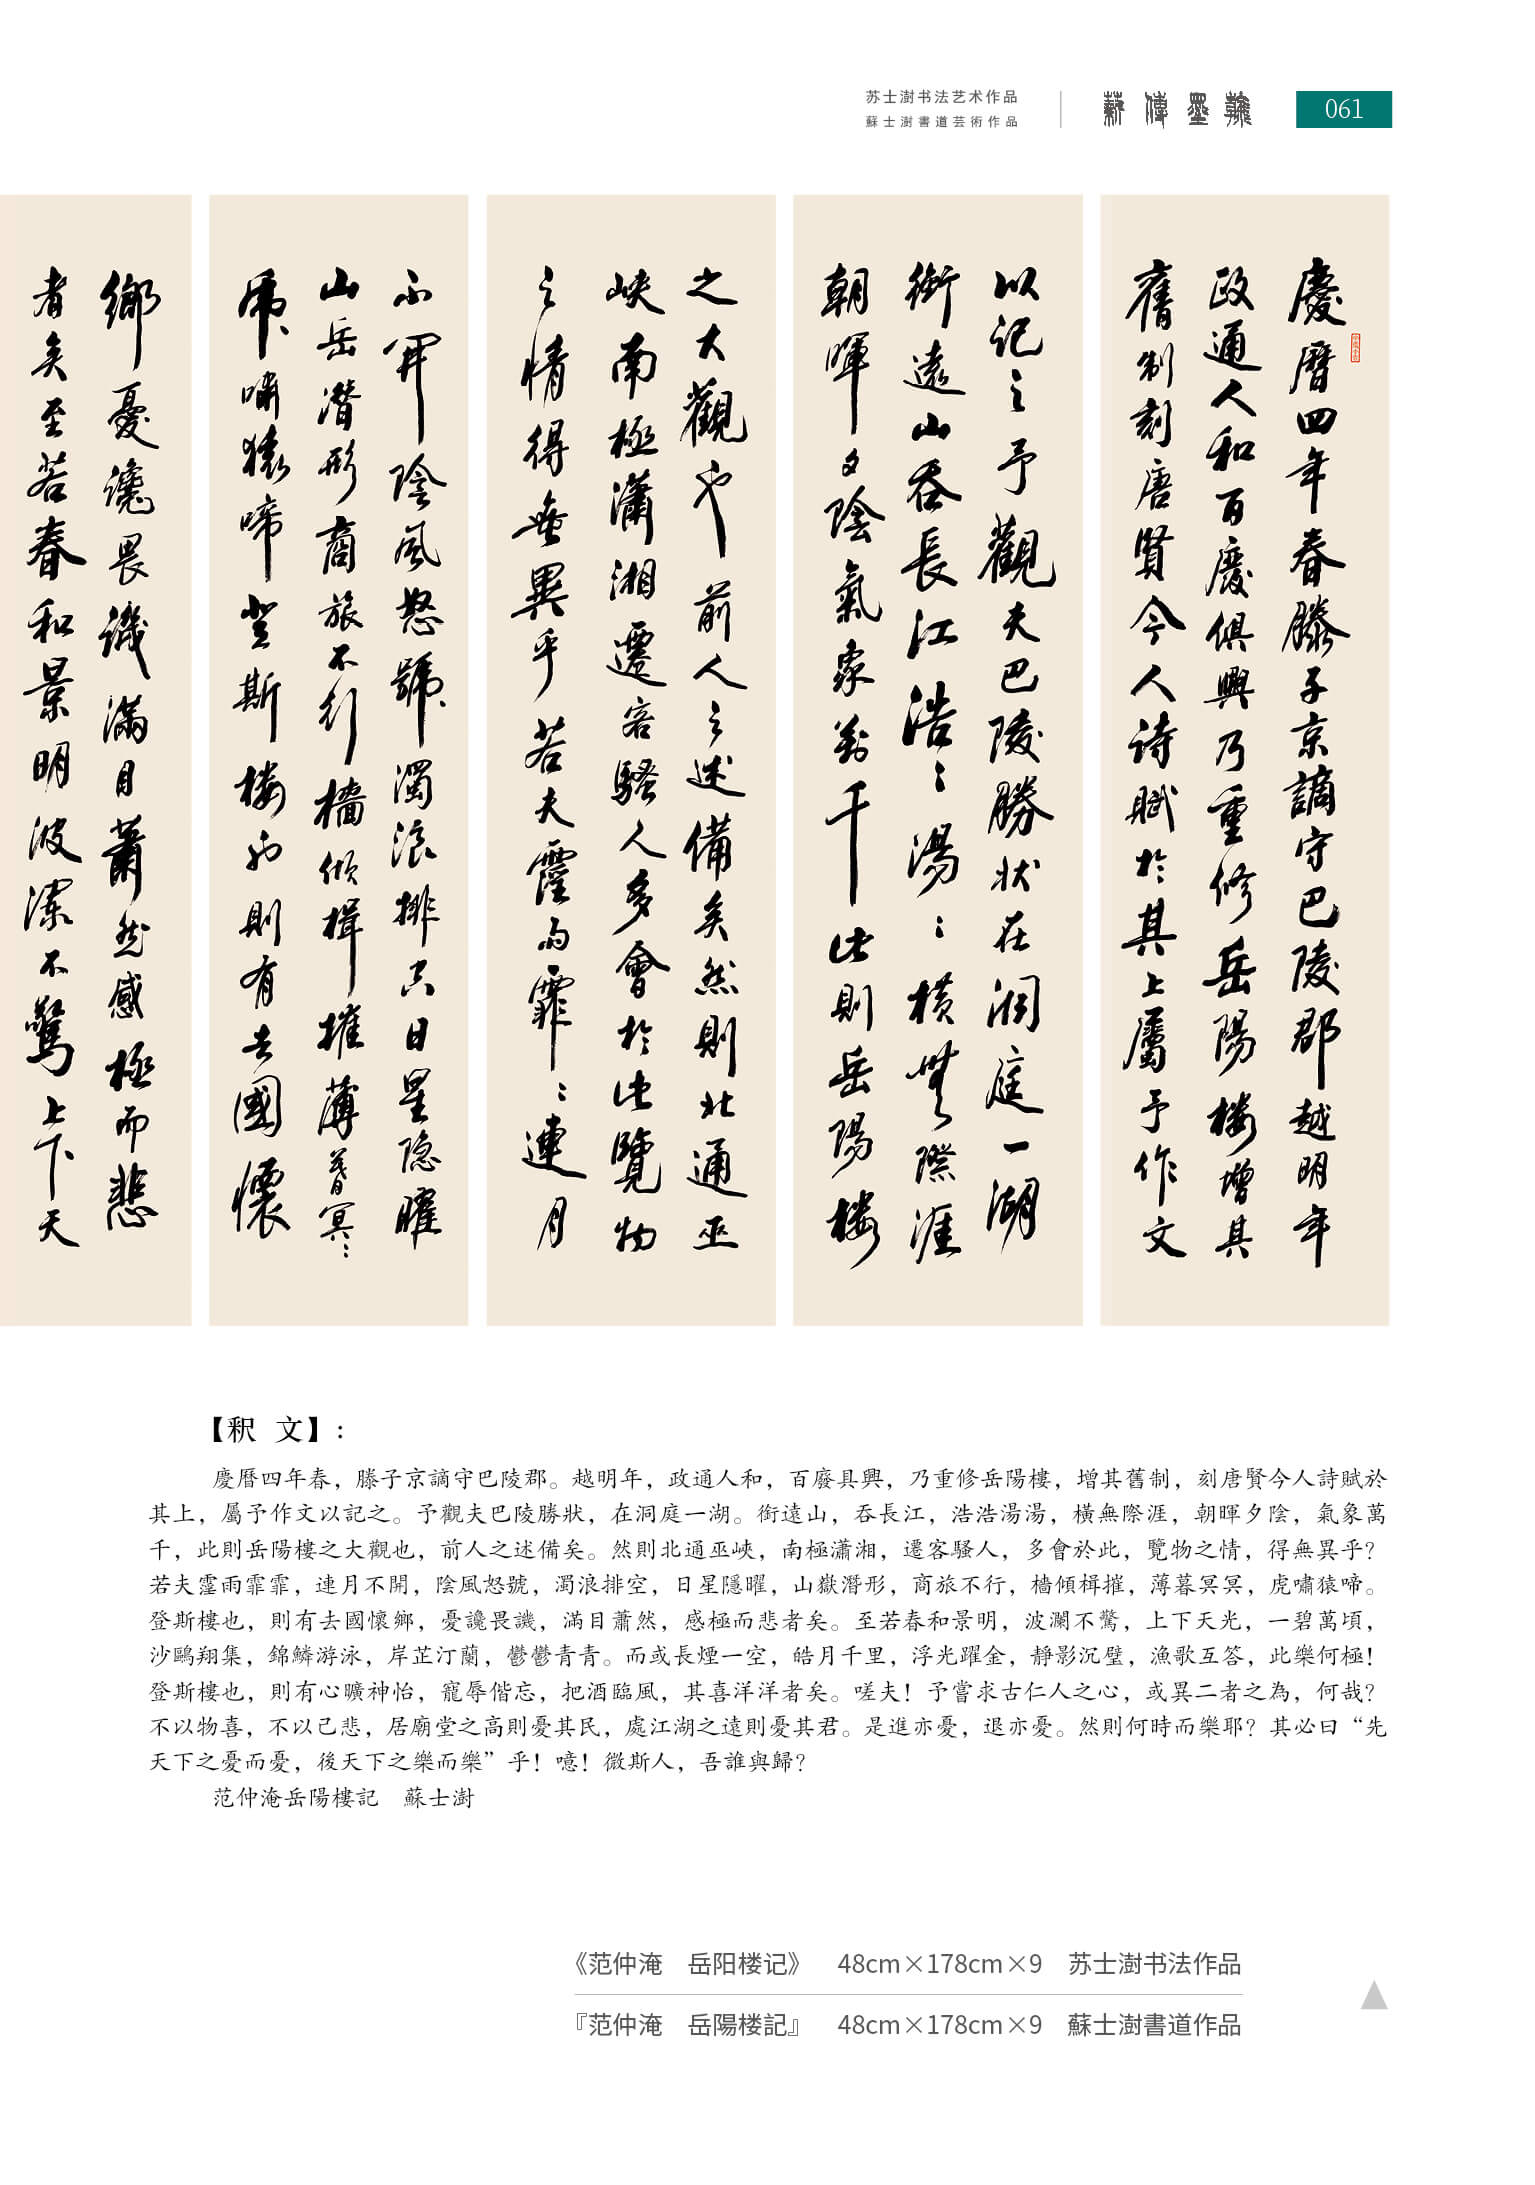 苏士澍书法艺术作品
蘇士澍書道芸術作品
薪傳墨翰
061
慶曆四年春滕子京謫守巴陵郡越明年
政通人和百廢俱興乃重修岳陽楼增其
舊制刻唐賢今人詩賦於其上屬予作文
以記之予觀夫巴陵勝状在洞庭一湖
銜遠山吞長江浩〻湯〻橫無際涯
朝暉夕陰氣象萬千此則岳陽楼
之大觀也前人之述備矣然則北通巫
峽南極瀟湘遷客騷人多會於此覽物
之情得無異乎若夫霪雨霏〻連月
不開陰風怒號濁浪排空日星隐曜
山岳潛形商旅不行檣傾楫摧薄暮冥〻
虎嘯猿啼登斯楼也則有去國懷
鄉憂讒畏譏滿目蕭然感極而悲
者矣至若春和景明波瀾不驚上下天
【釈 文】:
慶曆四年春，滕子京謫守巴陵郡。越明年，政通人和，百廢具興，乃重修岳陽樓，增其舊制，刻唐賢今人詩賦於
其上，屬予作文以記之。予觀夫巴陵勝狀，在洞庭一湖。銜遠山，吞長江，浩浩湯湯，橫無際涯，朝暉夕陰，氣象萬
千，此則岳陽樓之大觀也，前人之述備矣。然則北通巫峽，南極瀟湘，遷客騷人，多會於此，覽物之情，得無異乎？
若夫霪雨霏霏，連月不開，陰風怒號，濁浪排空，日星隱曜，山嶽潛形，商旅不行，檣傾楫摧，薄暮冥冥，虎嘯猿啼。
登斯樓也，則有去國懷鄉，憂讒畏譏，滿目蕭然，感極而悲者矣。至若春和景明，波瀾不驚，上下天光，一碧萬頃，
沙鷗翔集，錦鱗游泳，岸芷汀蘭，鬱鬱青青。而或長煙一空，皓月千里，浮光躍金，靜影沉璧，漁歌互答，此樂何極！
登斯樓也，則有心曠神怡，寵辱偕忘，把酒臨風，其喜洋洋者矣。嗟夫！予嘗求古仁人之心，或異二者之為，何哉？
不以物喜，不以己悲，居廟堂之高則憂其民，處江湖之遠則憂其君。是進亦憂，退亦憂。然則何時而樂耶？其必曰“先
天下之憂而憂，後天下之樂而樂”乎！噫！微斯人，吾誰與歸？
范仲淹岳陽樓記 蘇士澍
《范仲淹 岳阳楼记》 48cm×178cm×9 苏士澍书法作品
『范仲淹 岳陽楼記』 48cm×178cm×9 蘇士澍書道作品